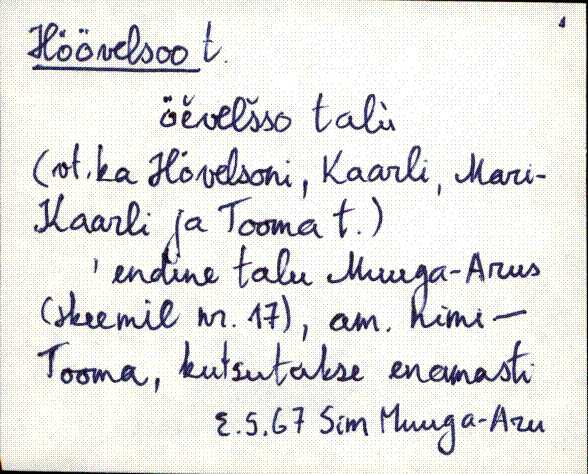 Höövelsoo t.
öěvelšso talù
(vt. ka Hövelsoni, Kaarli, Mari-
Kaarli ja Tooma t.)
' endine talu Muuga-Arus
(skeemil nr. 17), am. nimi —
Tooma, kutsutakse enamasti
E.S.67 Sim Muuga-Aru